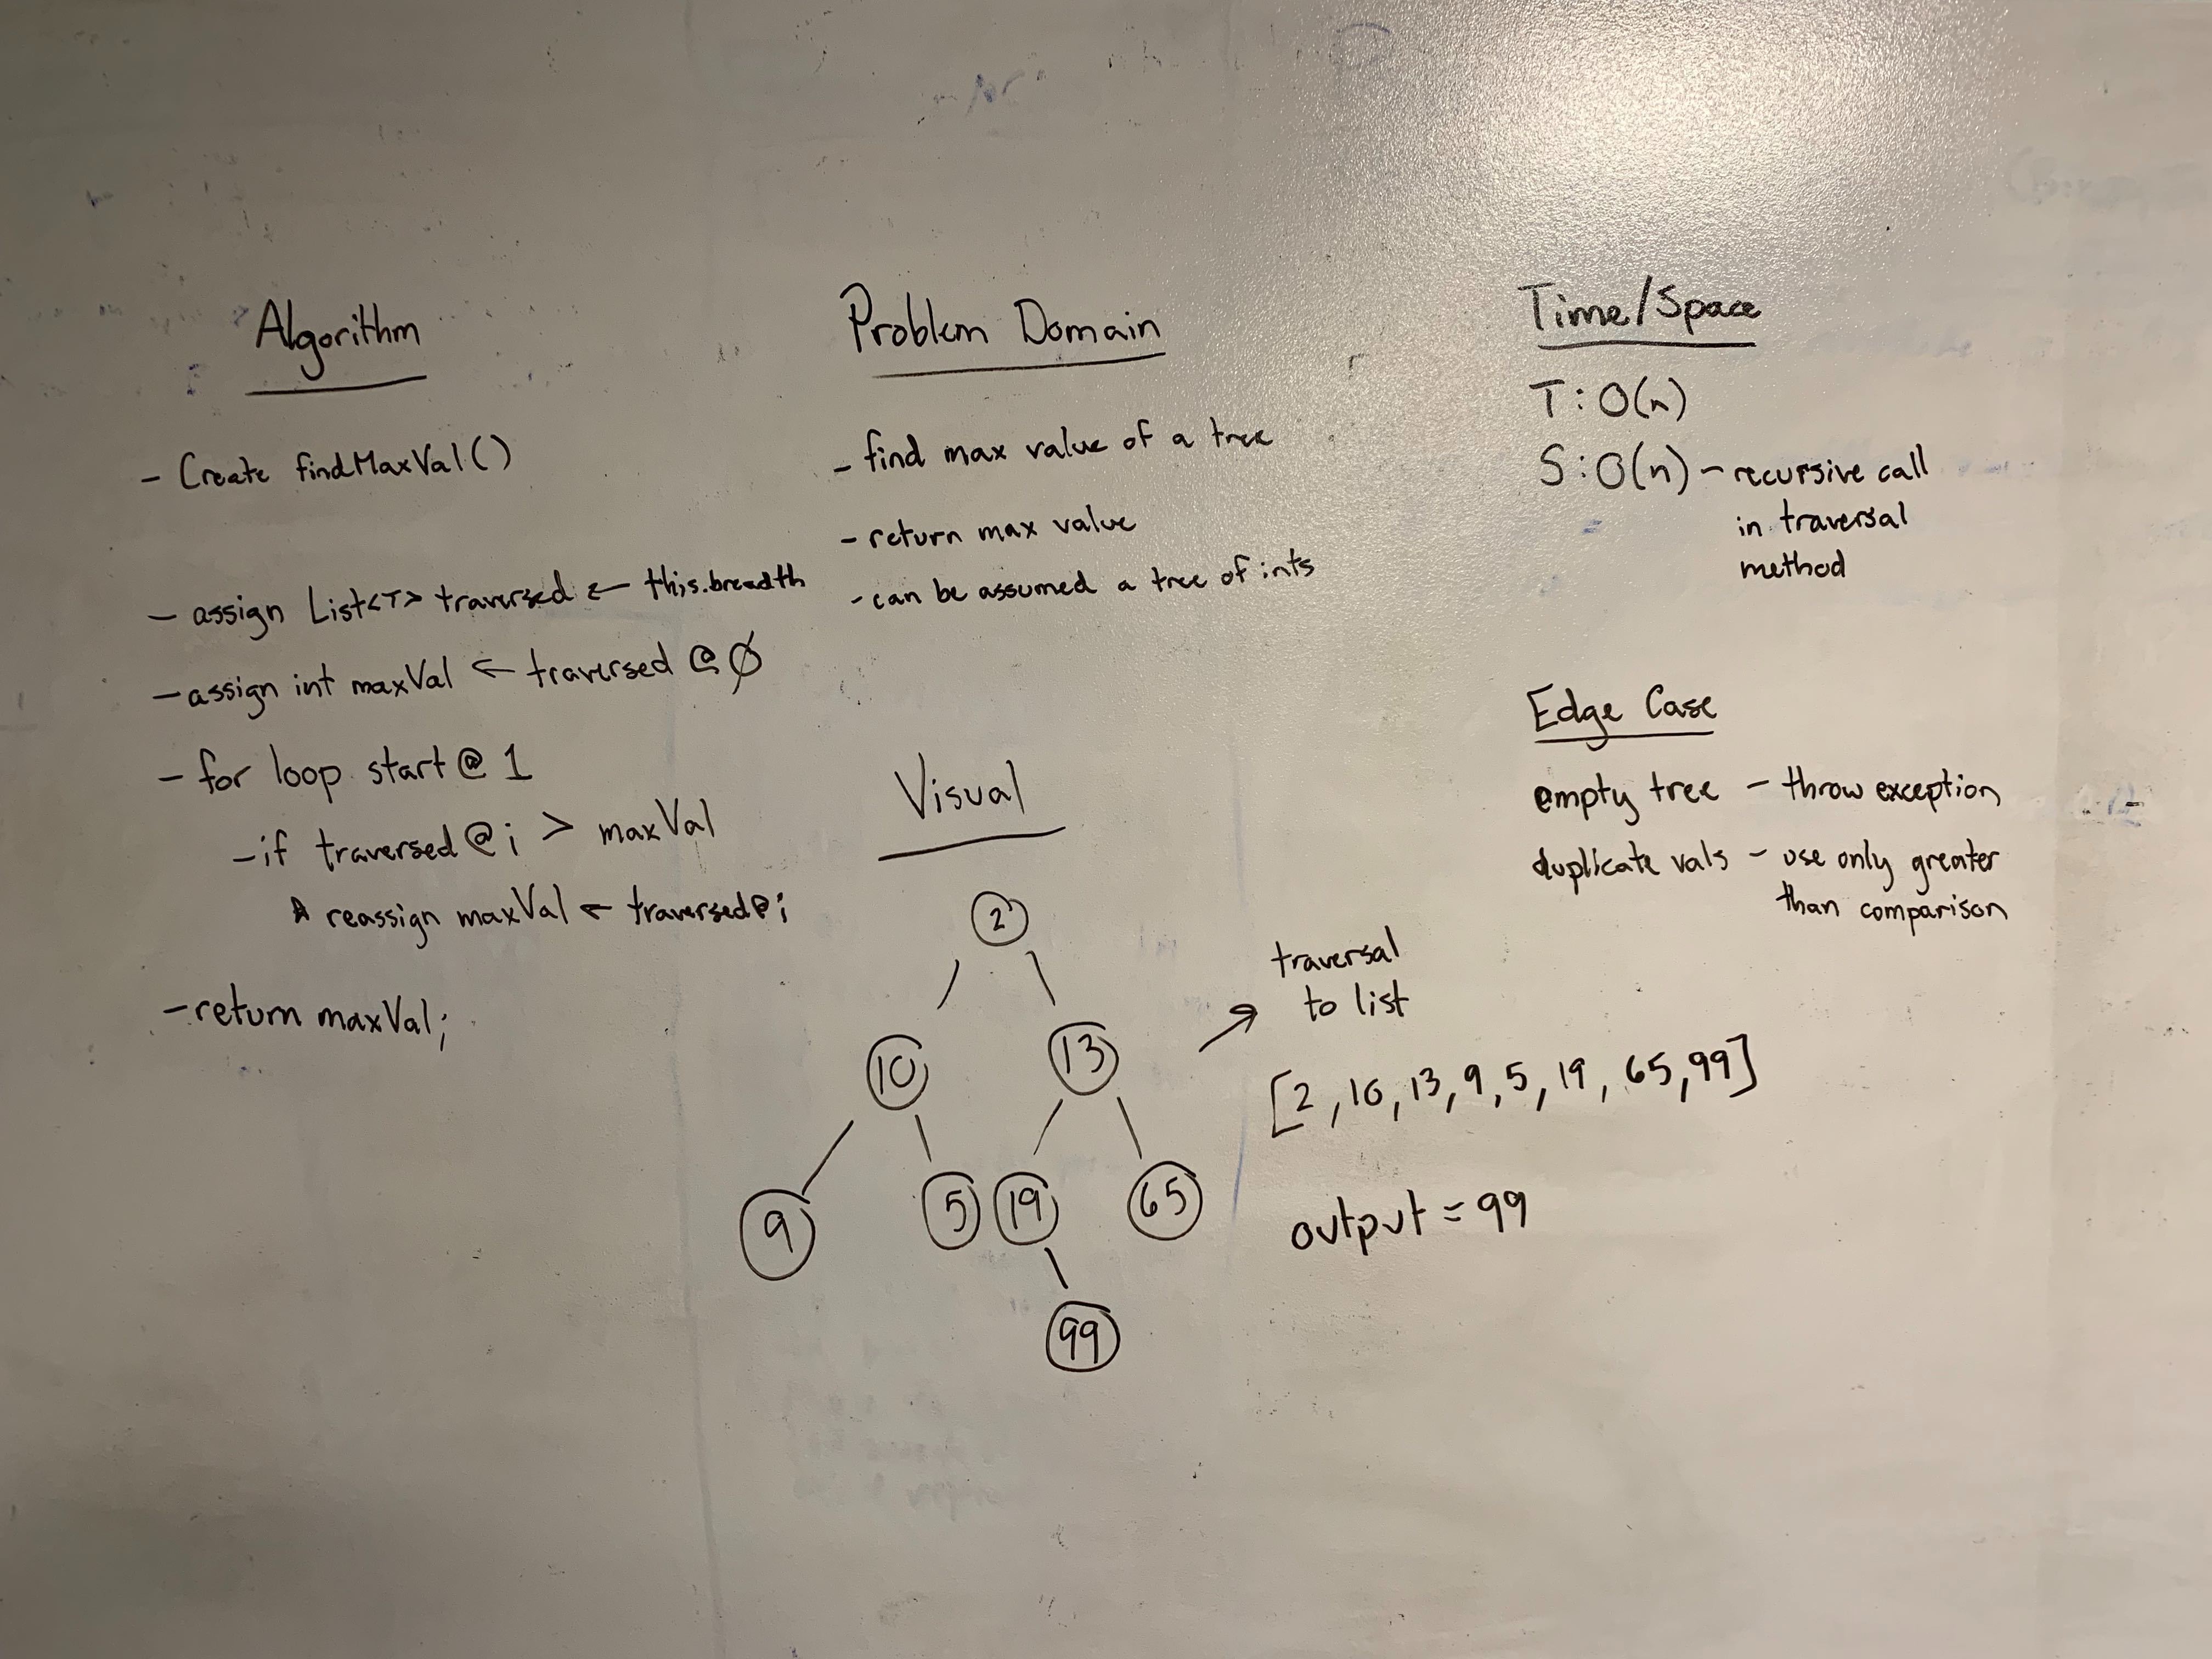 Algorithm
- Create findMaxVal()
- assign List<T> traversed ← this.breadth
- assign int maxVal ← traversed @ Ø
- for loop start @ 1
- if traversed @ i > maxVal
reassign maxVal ← traversed@i
- return maxVal;
Problem Domain
- find max value of a tree
- return max value
- can be assumed a tree of ints
Visual
2
10
13
9
5
19
65
99
traversal
to list
[2, 10, 13, 9, 5, 19, 65, 99]
output = 99
Time/Space
T: O(n)
S: O(n) - recursive call
in traversal
method
Edge Case
empty tree - throw exception
duplicate vals - use only greater
than comparison